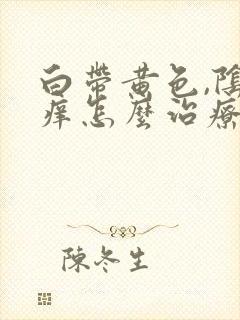 白帶黄色,陰
痒怎麼治療
陳冬生